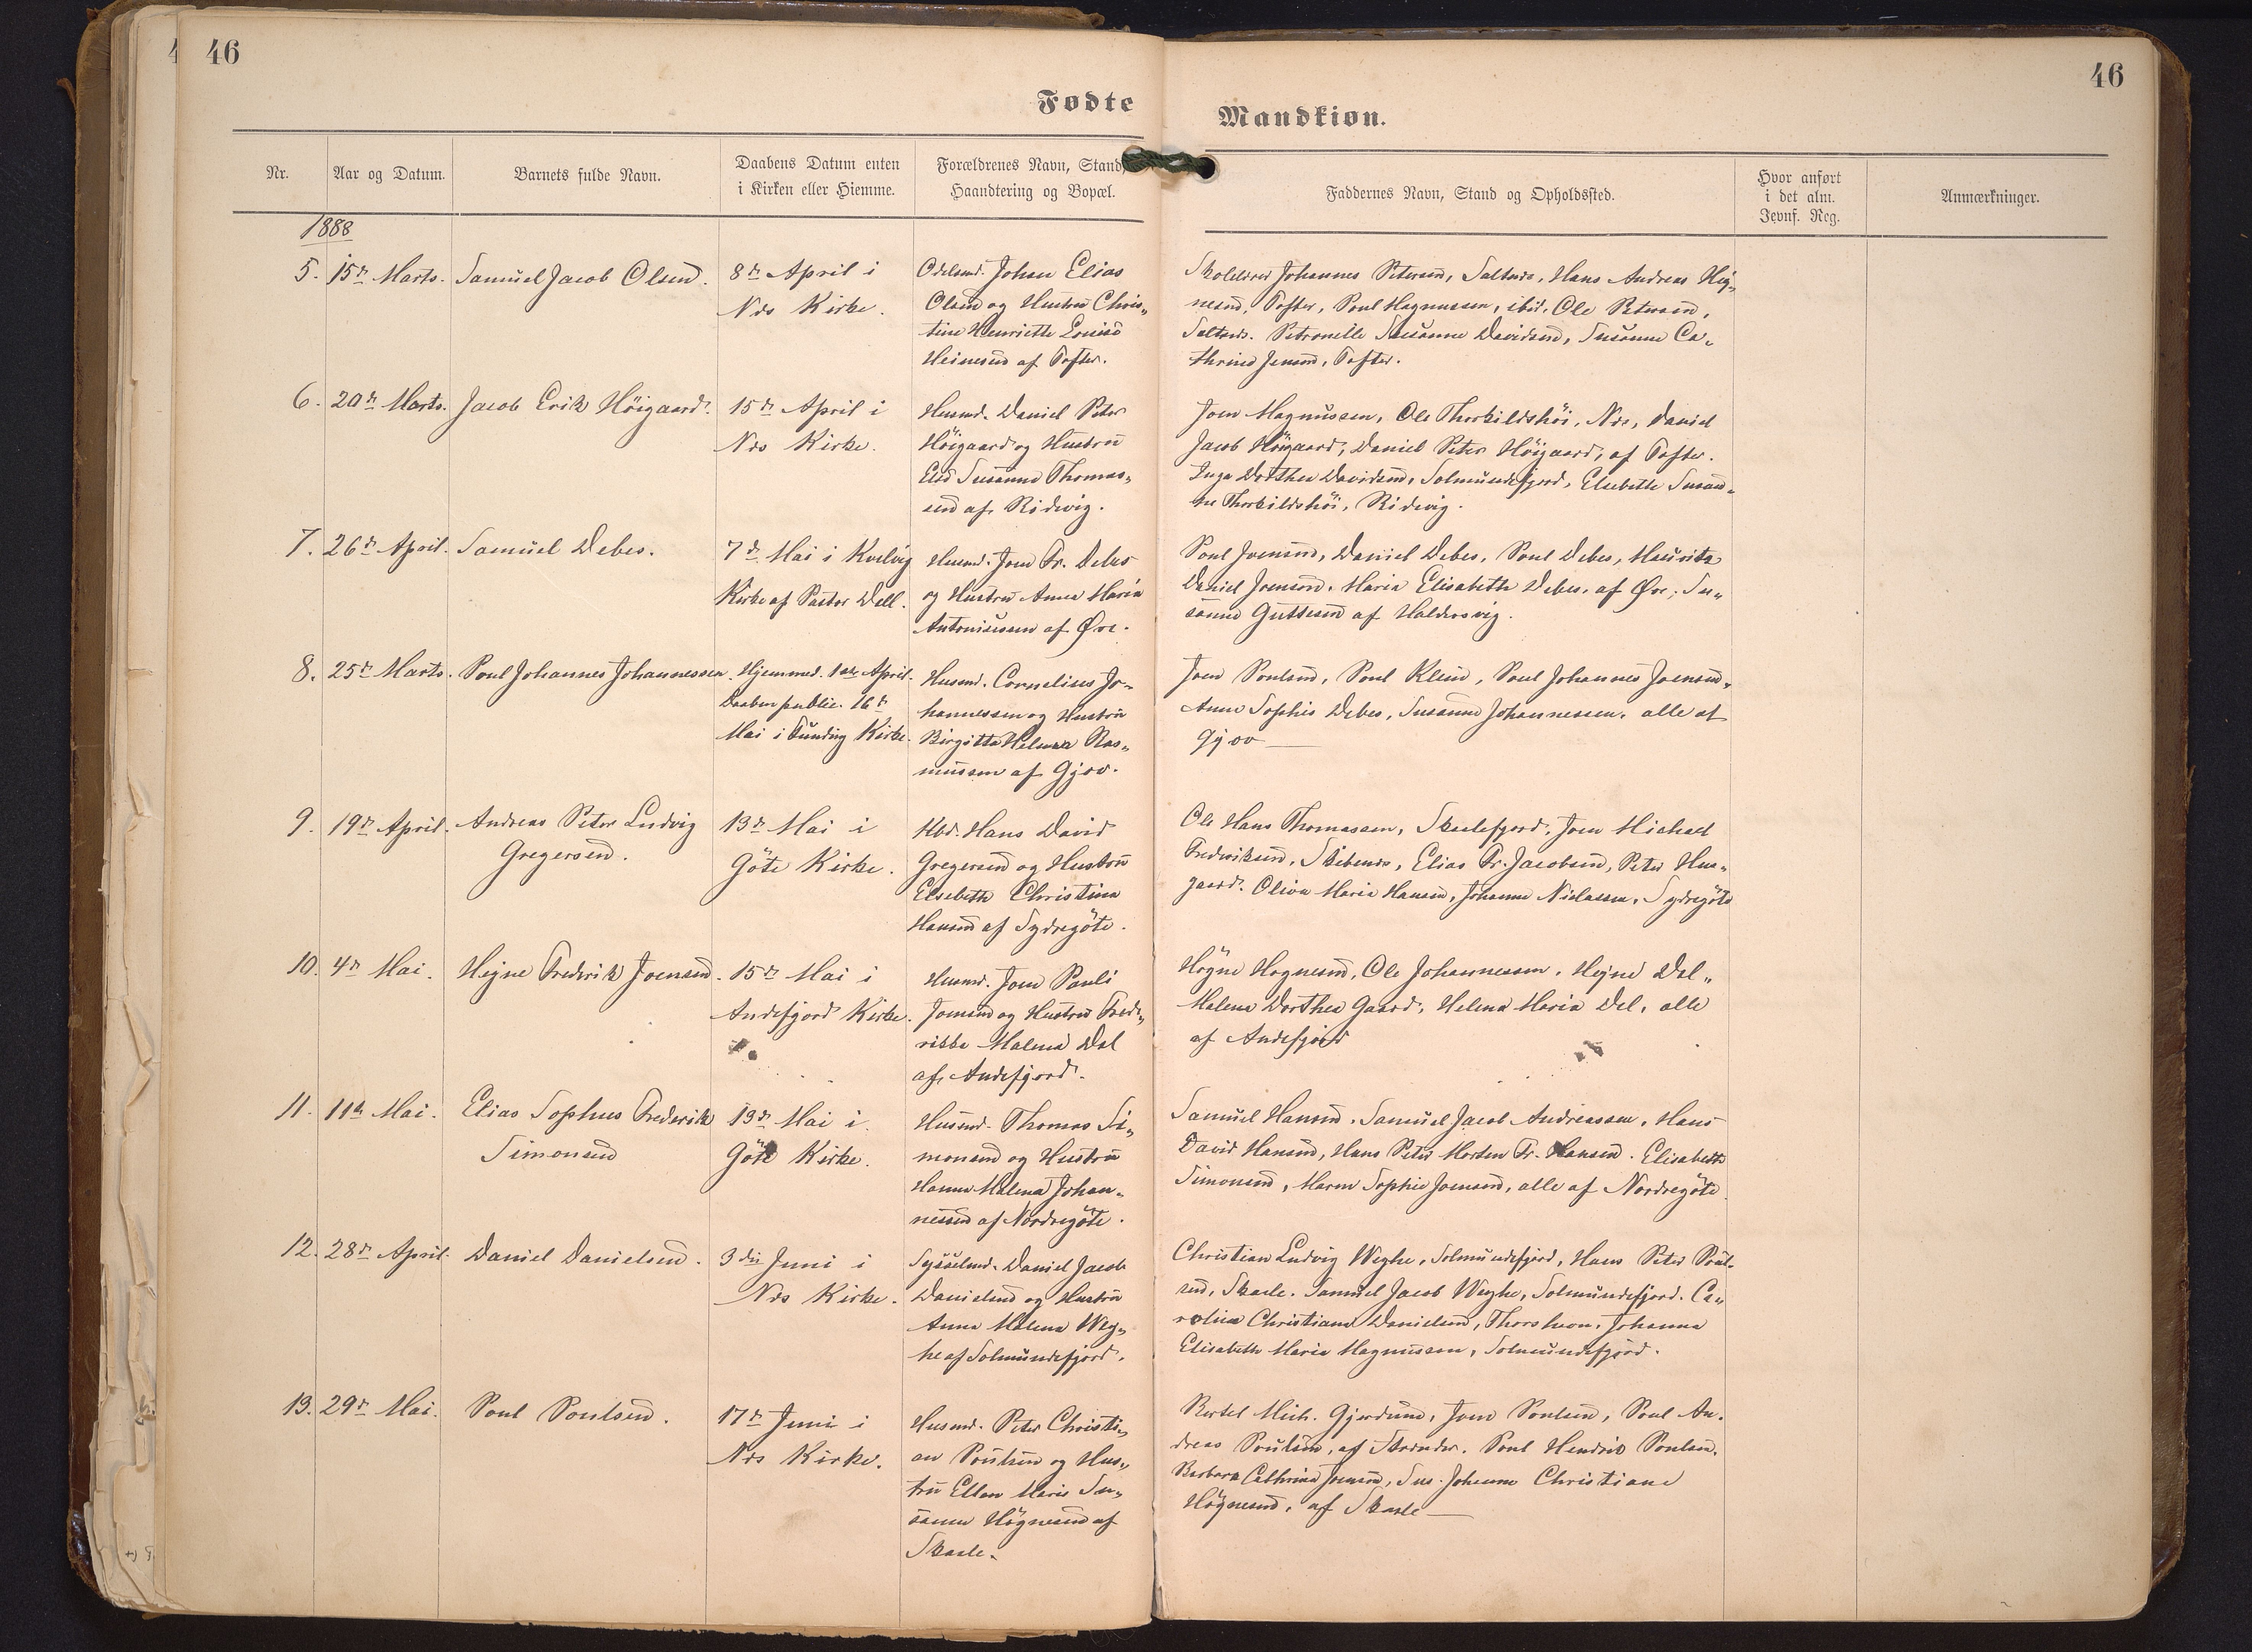 46
46
Fødte
Mandkiøn.
Nr.
Aar og Datum.
Barnets fulde Navn.
Daabens Datum enten
i Kirken eller Hiemme.
Forældrenes Navn, Stand,
Haandtering og Bopæl.
Faddernes Navn, Stand og Opholdssted.
Hvor anført
i det alm.
Jevnf. Reg.
Anmærkninger.
1888
5.
15de Marts.
Samuel Jacob Olsen.
8de April i
Nes Kirke.
Odelsmd. Johan Elias
Olsen og Hustru Chris„
tine Henriette Louise
Heinesen af Tofter.
Johannes Petersen, Saltnes, Hans Andreas Hög„
nesen, Tofter, Poul Magnussen, ibid. Ole Petersen,
Saltnes. Petronelle Susanne Davidsen, Susanne Ca„
thrine Jensen, Tofter.
6.
20de Marts.
Jacob Erik Höigaard.
15de April i
Nes Kirke.
Husmd. Daniel Peter
Höigaard og Hustru
Else Susanne Thomas„
sen af Ridevig.
Joen Magnussen, Ole Thorkildshöi, Nes, Daniel
Jacob Höigaard, Daniel Peter Höigaard, af Tofter.
Inga Dorthea Davidsen, Solmundefjord, Elsebeth Susan„
ne Thorkildshöi, Ridevig.
7.
26de April.
Samuel Debes.
7de Mai i Kvilvig
Kirke af Pastor Dell.
Husmd. Joen Fr. Debes
og Hustru Anna Maria
Antoniussen af Øre.
Poul Joensen, Daniel Debes, Poul Debes, Mauritz
Daniel Joensen, Maria Elisabeth Debes, af Øre, Su„
sanne Guttesen af Haldersvig.
8.
25de Marts.
Poul Johannes Johannessen.
Hjemmed. 1ste April.
Daaben public. 16de
Mai i Funding Kirke.
Husmd. Cornelius Jo„
hannessen og Hustru
Birgitta Helena Ras„
mussen af Gjov.
Joen Poulsen, Poul Klein, Poul Johannes Joensen,
Anne Sophie Debes, Susanne Johannessen, alle af
Gjov
9.
19de April.
Andreas Peter Ludvig
Gregersen.
13de Mai i
Göte Kirke.
Kbd. Hans David
Gregersen og Hustru
Elsebeth Christina
Hansen af Sydregöte.
Ole Hans Thomassen, Skaalefjord, Joen Michael
Frederiksen, Skibenes, Elias Fr. Jacobsen, Peter Hus„
gaard. Oliva Maria Hansen, Johanne Niclassen, Sydregöte
10.
4de Mai.
Hejne Frederik Joensen.
15de Mai i
Andefjord Kirke.
Husmd. Joen Pauli
Joensen og Hustru Frede„
rikke Malena Dal
af Andefjord.
Högne Hognesen, Ole Johannessen, Hejne Dal„
Malena Dorthea Gaard, Helena Maria Dal, alle
af Andefjord
11.
11te Mai.
Elias Sophus Frederik
Simonsen
13de Mai i
Göte Kirke.
Husmd. Thomas Si„
monsen og Hustru
Hanna Malena Johan„
nessen af Nordregöte.
Samuel Hansen, Samuel Jacob Andreassen, Hans
David Hansen, Hans Peter Morten Fr. Hansen. Elisabeth
Simonsen, Maren Sophie Joensen, alle af Nordregöte
12.
28de April.
Daniel Danielsen.
3die Juni i
Nes Kirke.
Sysselmd. Daniel Jacob
Danielsen og Hustru
Anna Malena Weg„
he af Solmundefjord.
Christian Ludvig Weghe, Solmundefjord, Hans Peter Poul„
sen, Skaale. Samuel Jacob Weyhe, Solmundefjord. Ca„
roline Christiane Danielsen, Thorshavn, Johanna
Elisabeth Maria Magnussen, Solmundefjord.
13.
29de Mai.
Poul Poulsen.
17de Juni i
Nes Kirke.
Husmd. Peter Christi„
an Poulsen og Hus„
tru Ellen Marie Su„
sanne Högnesen af
Skaale.
Mich. Gjerdum, Joen Poulsen, Poul An„
dreas Poulsen, af Strender. Poul Hendrik Poulsen.
Barbara Cathrina Joensen, Sus. Johanne Christiane
Högnesen, af Skaale